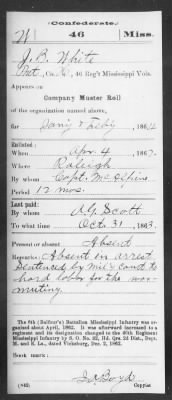 Confederate.
W 46 Miss.
J. B. White
Pvt, Co. , 46 Reg't Mississippi Vols.
Appears on
Company Muster Roll
of the organization named above,
for Jan'y & Feb'y, 1864.
Enlisted:
When Apr. 4, 1862.
Where Raleigh
By whom Capt. McAlpin
Period 12 mos.
Last paid:
By whom A.G. Scott
To what time Oct. 31, 1863.
Present or absent Absent
Remarks: Absent in arrest
sentenced by mil'y court to
hard labor for the war
mutiny.
The 6th (Balfour's) Battalion Mississippi Infantry was
organized about April, 1862. It was afterward increased to
a regiment and its designation changed to the 46th Regiment
Mississippi Infantry by S. O. No. 32, Hd. Qrs. 2d Dist., Dept.
M. and E. La., dated Vicksburg, Dec. 2, 1862.
Book mark:
(642) Boyd
Copyist.